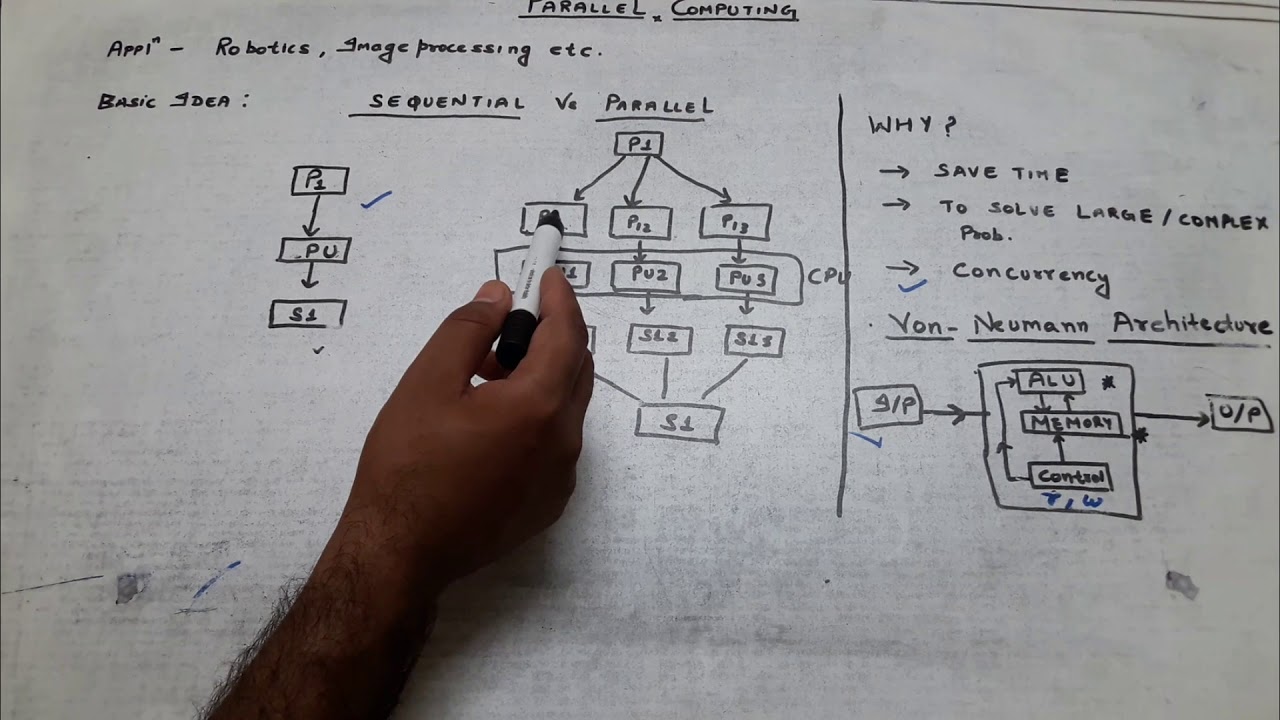 PARALLEL COMPUTING
Appln - Robotics, Image processing etc.
BASIC IDEA: SEQUENTIAL Vs PARALLEL
P1
PU
S1
P1
P12 P13
PU2 PU3 CPU
S12 S13
S1
WHY?
→ SAVE TIME
→ TO SOLVE LARGE/COMPLEX
Prob.
→ Concurrency
Von-Neumann Architecture
I/P
ALU *
MEMORY *
Control
r, w
O/P